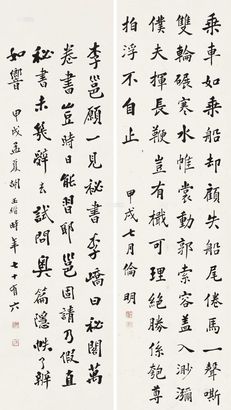 乘車如乘船却顧失船尾倦馬一聲嘶
雙輪碾寒水帷裳動郭索容蓋入渺瀰
僕夫揮長鞭豈有檝可理絕勝係匏尊
拍浮不自止 甲戌七月倫明
李邕顧一見秘書李嶠曰秘閣萬
卷書豈時日能習耶邕固請乃假直
秘書未幾辭去試問奧篇隱帙了辨
如響 甲戌孟夏胡玉縉時年七十有六